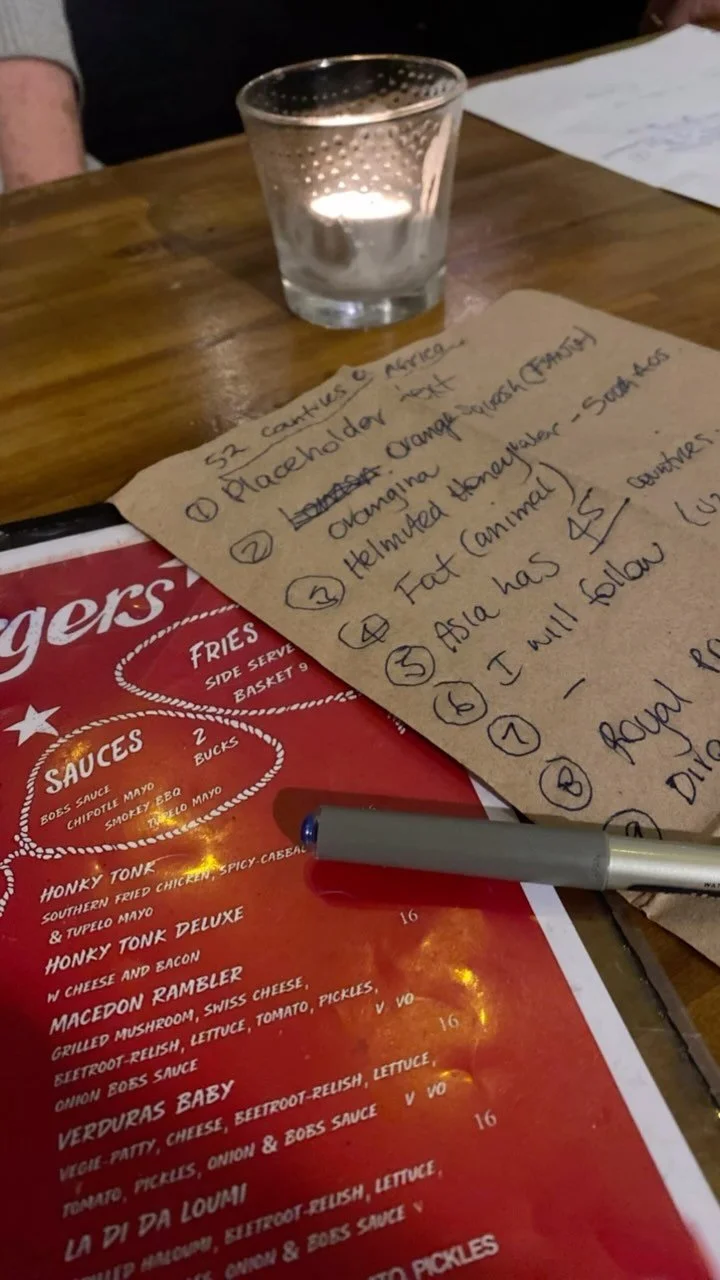 52 Countries o Africa
① Placeholder text
② Orange Squash (FANTA)
orangina
③ Helmuted Honey - South Aos
④ Fat (animal)
⑤ Asia has 45 countries.
⑥ I will follow (U2
⑦ –
⑧ Royal
⑨
gers
FRIES
SIDE SERVE
BASKET 9
SAUCES 2
BUCKS
BOBS SAUCE
CHIPOTLE MAYO
SMOKEY BBQ
TUPELO MAYO
16
HONKY TONK
SOUTHERN FRIED CHICKEN, SPICY-CABBA
& TUPELO MAYO
HONKY TONK DELUXE 16
W CHEESE AND BACON
MACEDON RAMBLER
GRILLED MUSHROOM, SWISS CHEESE,
BEETROOT-RELISH, LETTUCE, TOMATO, PICKLES, V VO 16
ONION BOBS SAUCE
VERDURAS BABY
VEGIE-PATTY, CHEESE, BEETROOT-RELISH, LETTUCE,
TOMATO, PICKLES, ONION & BOBS SAUCE V VO 16
LA DI DA LOUMI
LLED HALOUMI, BEETROOT-RELISH, LETTUCE,
ES, ONION & BOBS SAUCE V
TO PICKLES